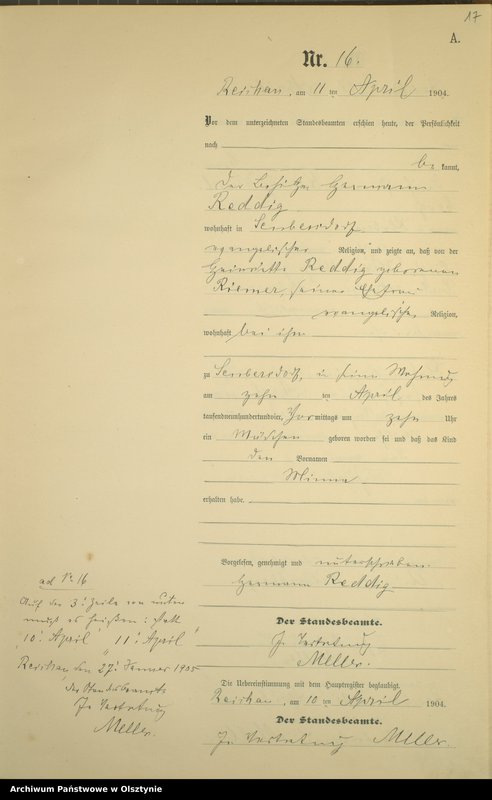 17
A.
Nr. 16.
Reichau, am 11 ten April 1904.
Vor dem unterzeichneten Standesbeamten erschien heute, der Persönlichkeit
nach
be kannt,
der Besitzer Hermann
Reddig
wohnhaft in
evangelischer Religion, und zeigte an, daß von der
Henriette Reddig geborenen
Riemer, seiner Ehefrau
evangelischer Religion,
wohnhaft bei ihm
zu in seiner Wohnung
am zehn ten April des Jahres
tausendneunhundertundvier, Vor mittags um zehn Uhr
ein Mädchen geboren worden sei und daß das Kind
den Vornamen
Minna
erhalten habe.
Vorgelesen, genehmigt und unterschrieben.
Hermann Reddig
Der Standesbeamte.
In Vertretung
Meller.
Die Uebereinstimmung mit dem Hauptregister beglaubigt.
Reichau, am 10 ten April 1904.
Der Standesbeamte.
In Vertretung Meller.
ad No 16
Auf der 3. Zeile von unten
muß es heißen: statt
"10. April" "11. April"
Reichau den 27. Januar 1905
der Standesbeamte
In Vertretung
Meller.
Archiwum Państwowe w Olsztynie